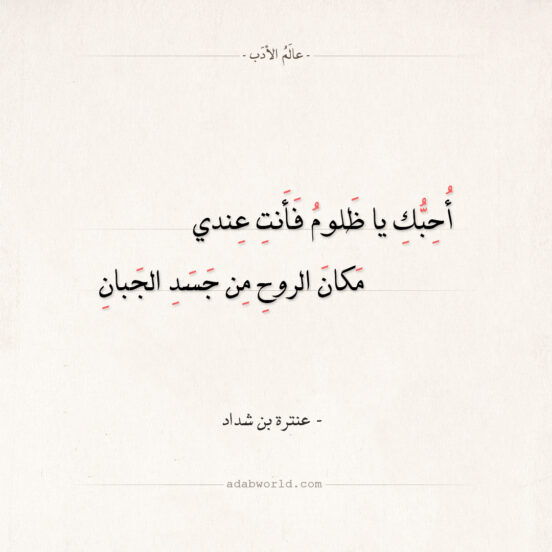 - عالَمُ الأدَب -
أُحِبُّكِ يا ظَلومُ فَأَنتِ عِندي
مَكانَ الروحِ مِن جَسَدِ الجَبانِ
- عنترة بن شداد
adabworld.com